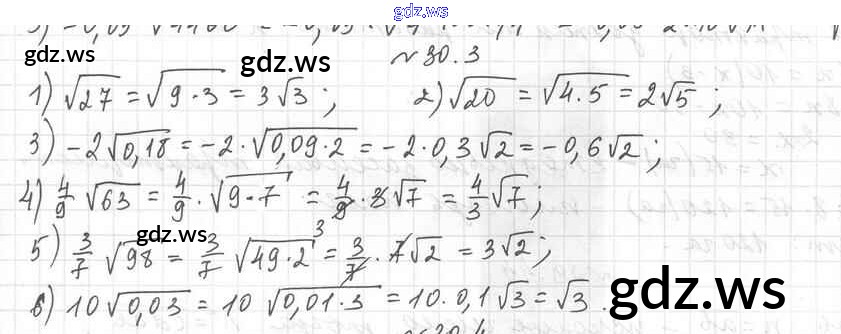 gdz.ws
№ 30.3
gdz.ws
1) √27 = √9·3 = 3√3; 2) √20 = √4·5 = 2√5;
gdz.ws
3) -2√0,18 = -2·√0,09·2 = -2·0,3√2 = -0,6√2;
4) 4/9 √63 = 4/9 · √9·7 = 4/9 · 3√7 = 4/3 √7;
gdz.ws
3
5) 3/7 √98 = 3/7 √49·2 = 3/7 · 7√2 = 3√2;
6) 10√0,03 = 10√0,01·3 = 10·0,1√3 = √3.
gdz.ws